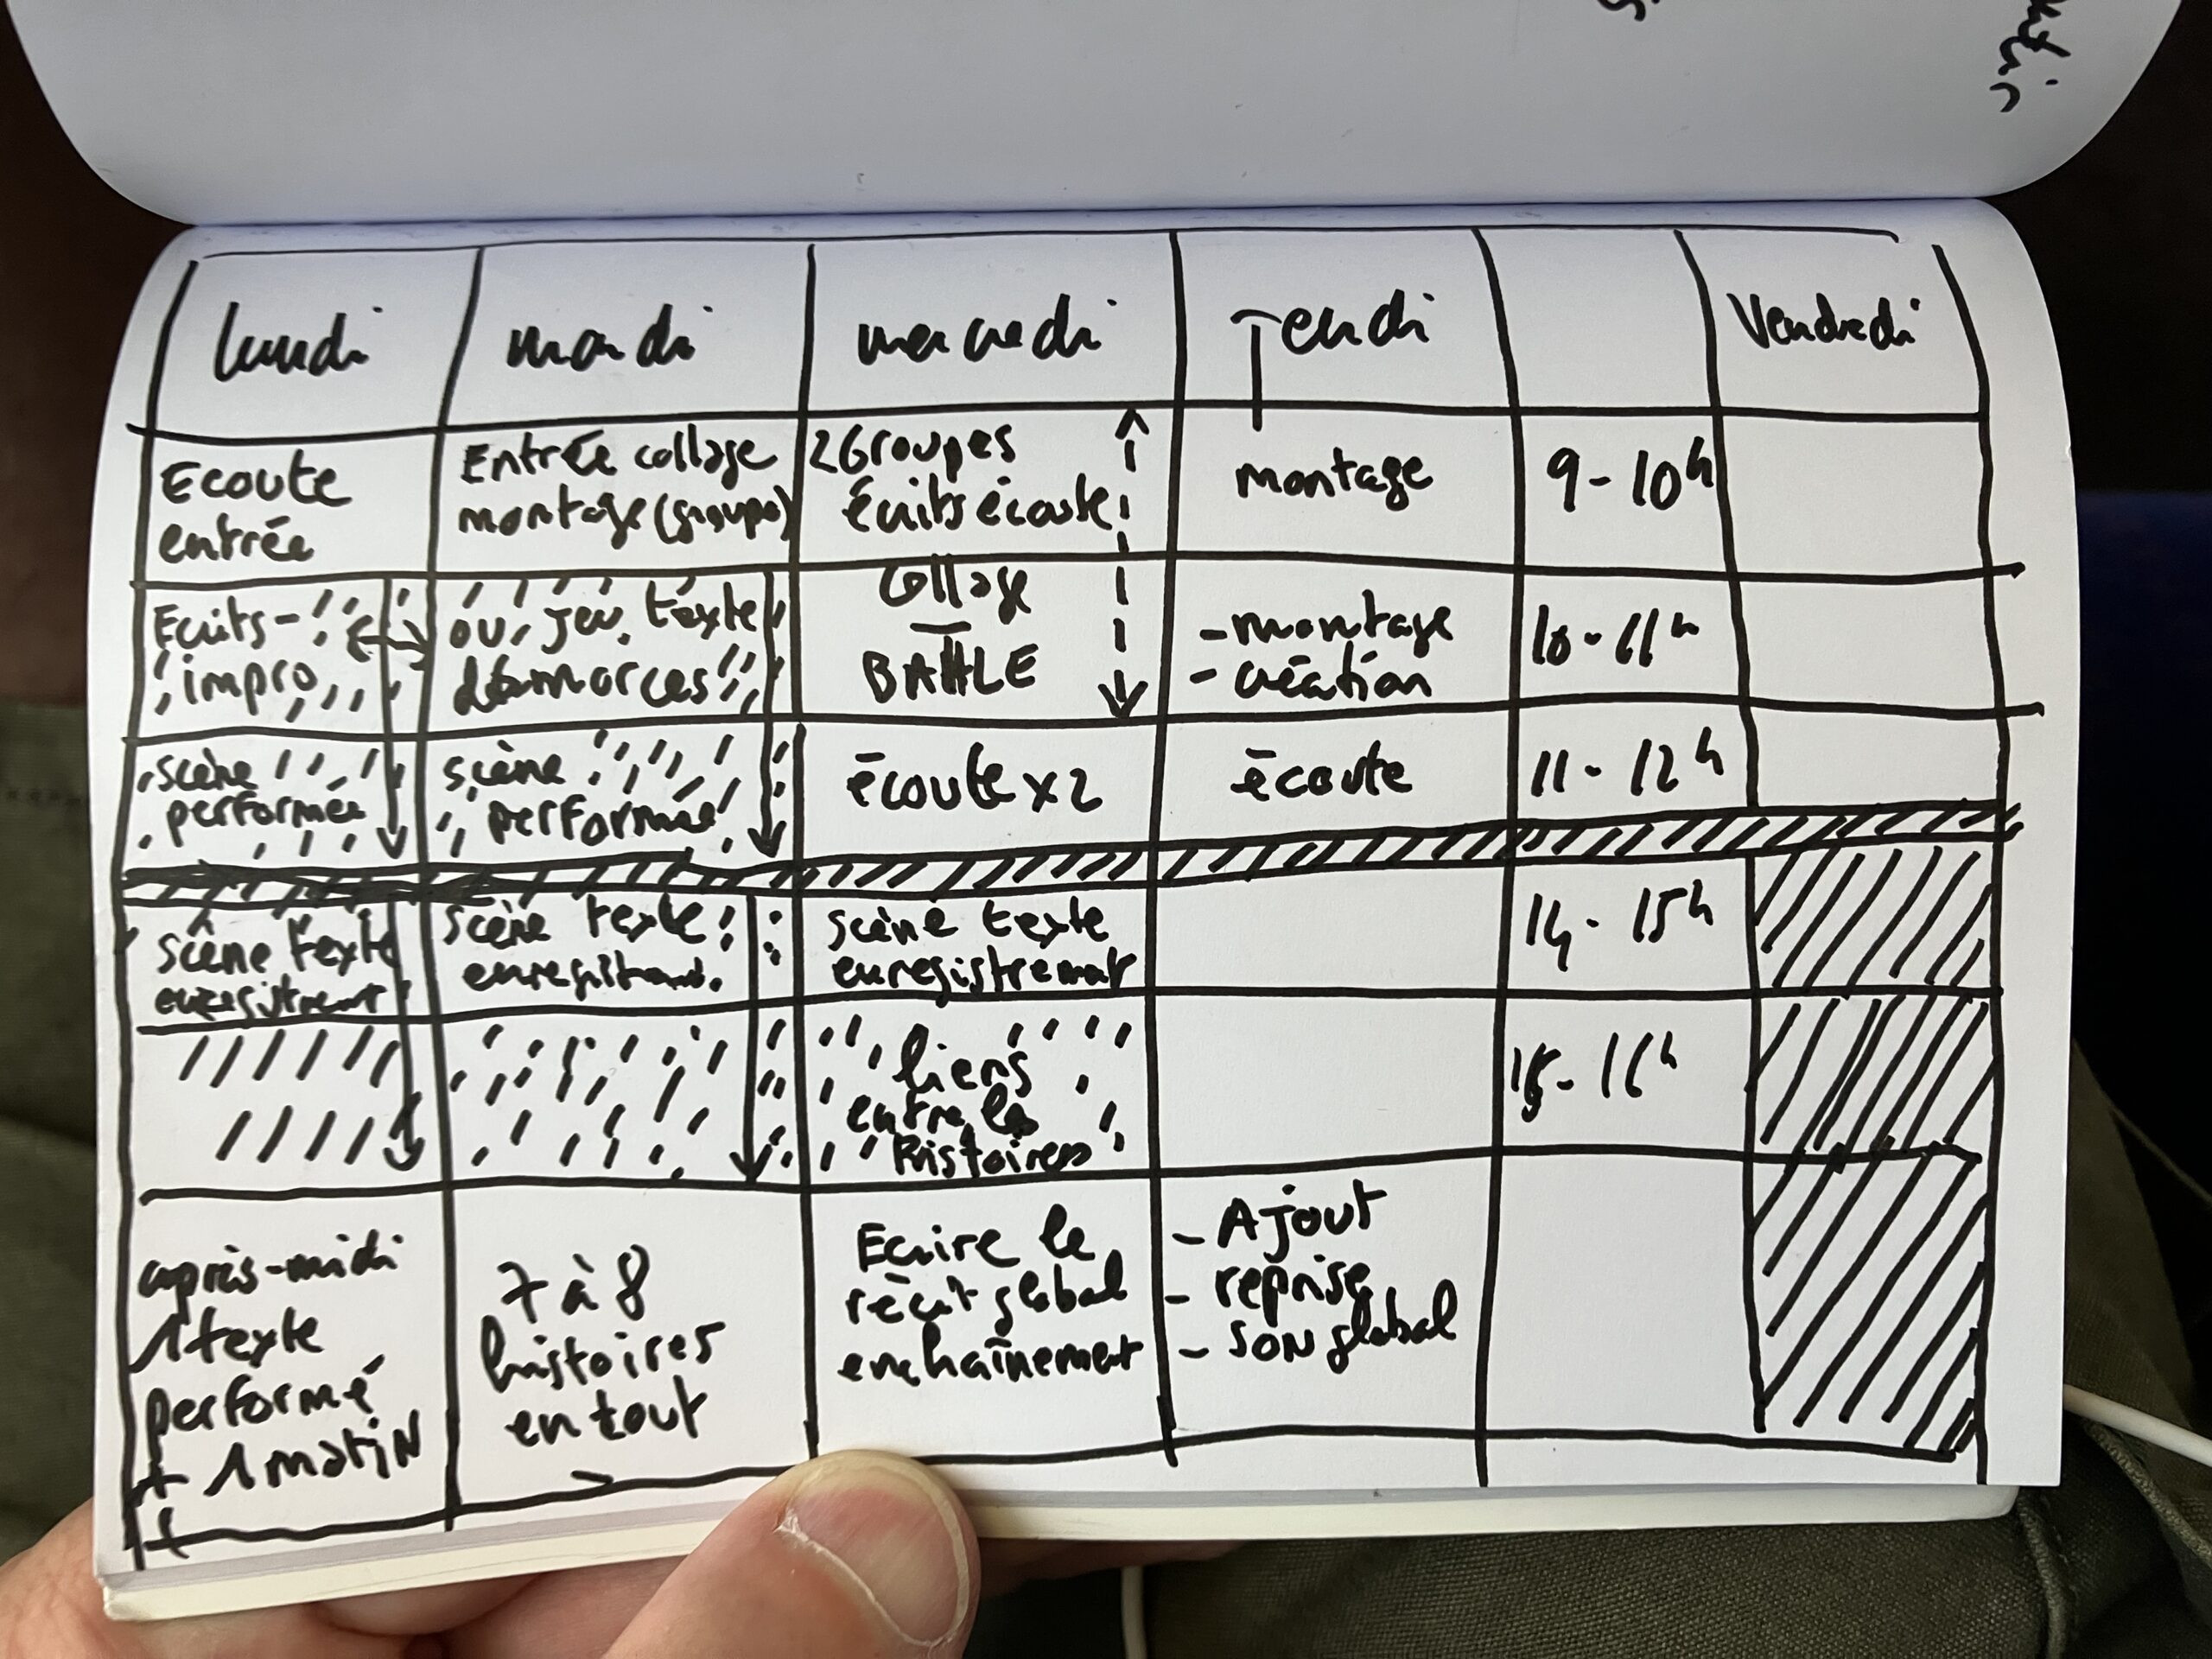 lundi
mardi
mercredi
Jeudi
Vendredi
Ecoute
entrée
Entrée collage
montage (groupe)
2 Groupes
écrits écoute
montage
9 - 10h
Ecrits -
impro
ou jeu texte
amorces
collage
BATTLE
- montage
- création
10 - 11h
scène
performée
scène
performée
écoute x 2
écoute
11 - 12h
scène texte
enregistrement
scène texte
enregistrement
scène texte
enregistrement
14 - 15h
liens
entre les
histoires
15 - 16h
après-midi
1 texte
performé
+ 1 matin
+
7 à 8
histoires
en tout
Ecrire le
récit global
enchaînement
- Ajout
- reprise
- son global